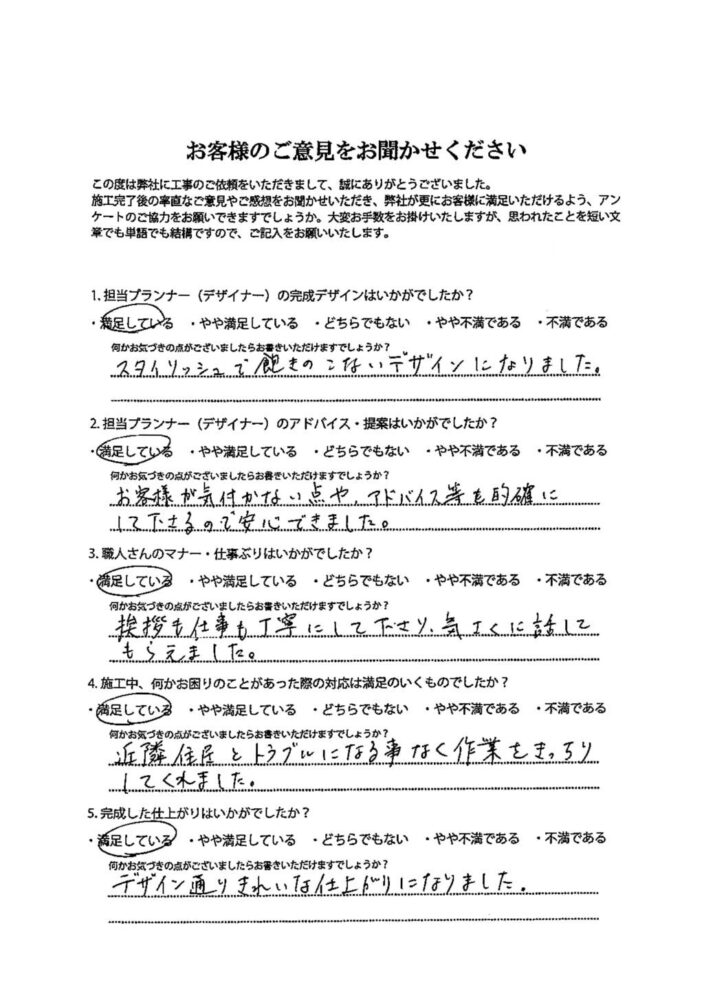 お客様のご意見をお聞かせください
この度は弊社に工事のご依頼をいただきまして、誠にありがとうございました。
施工完了後の率直なご意見やご感想をお聞かせいただき、弊社が更にお客様に満足いただけるよう、アン
ケートのご協力をお願いできますでしょうか。大変お手数をお掛けいたしますが、思われたことを短い文
章でも単語でも結構ですので、ご記入をお願いいたします。
1. 担当プランナー（デザイナー）の完成デザインはいかがでしたか？
・満足している ・やや満足している ・どちらでもない ・やや不満である ・不満である
何かお気づきの点がございましたらお書きいただけますでしょうか？
スタイリッシュで飽きのこないデザインになりました。
2. 担当プランナー（デザイナー）のアドバイス・提案はいかがでしたか？
・満足している ・やや満足している ・どちらでもない ・やや不満である ・不満である
何かお気づきの点がございましたらお書きいただけますでしょうか？
お客様が気付かない点や、アドバイス等も的確に
して下さるので安心できました。
3. 職人さんのマナー・仕事ぶりはいかがでしたか？
・満足している ・やや満足している ・どちらでもない ・やや不満である ・不満である
何かお気づきの点がございましたらお書きいただけますでしょうか？
挨拶も仕事も丁寧にして下さり、気さくに話して
もらえました。
4. 施工中、何かお困りのことがあった際の対応は満足のいくものでしたか？
・満足している ・やや満足している ・どちらでもない ・やや不満である ・不満である
何かお気づきの点がございましたらお書きいただけますでしょうか？
近隣住居とトラブルになる事なく作業をきっちり
してくれました。
5. 完成した仕上がりはいかがでしたか？
・満足している ・やや満足している ・どちらでもない ・やや不満である ・不満である
何かお気づきの点がございましたらお書きいただけますでしょうか？
デザイン通りきれいな仕上がりになりました。